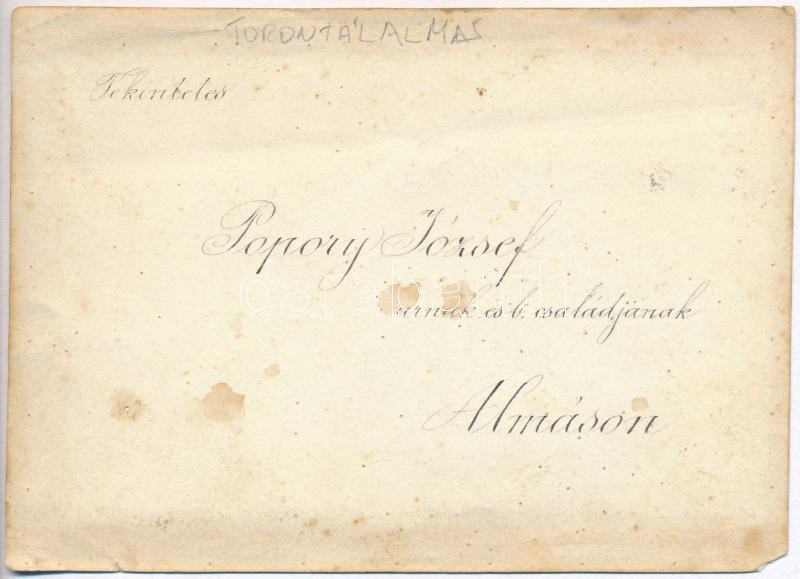 TORONTÁLALMÁS
Tekintetes
Popory József
darabanth
urnak es b. családjának
Almáson